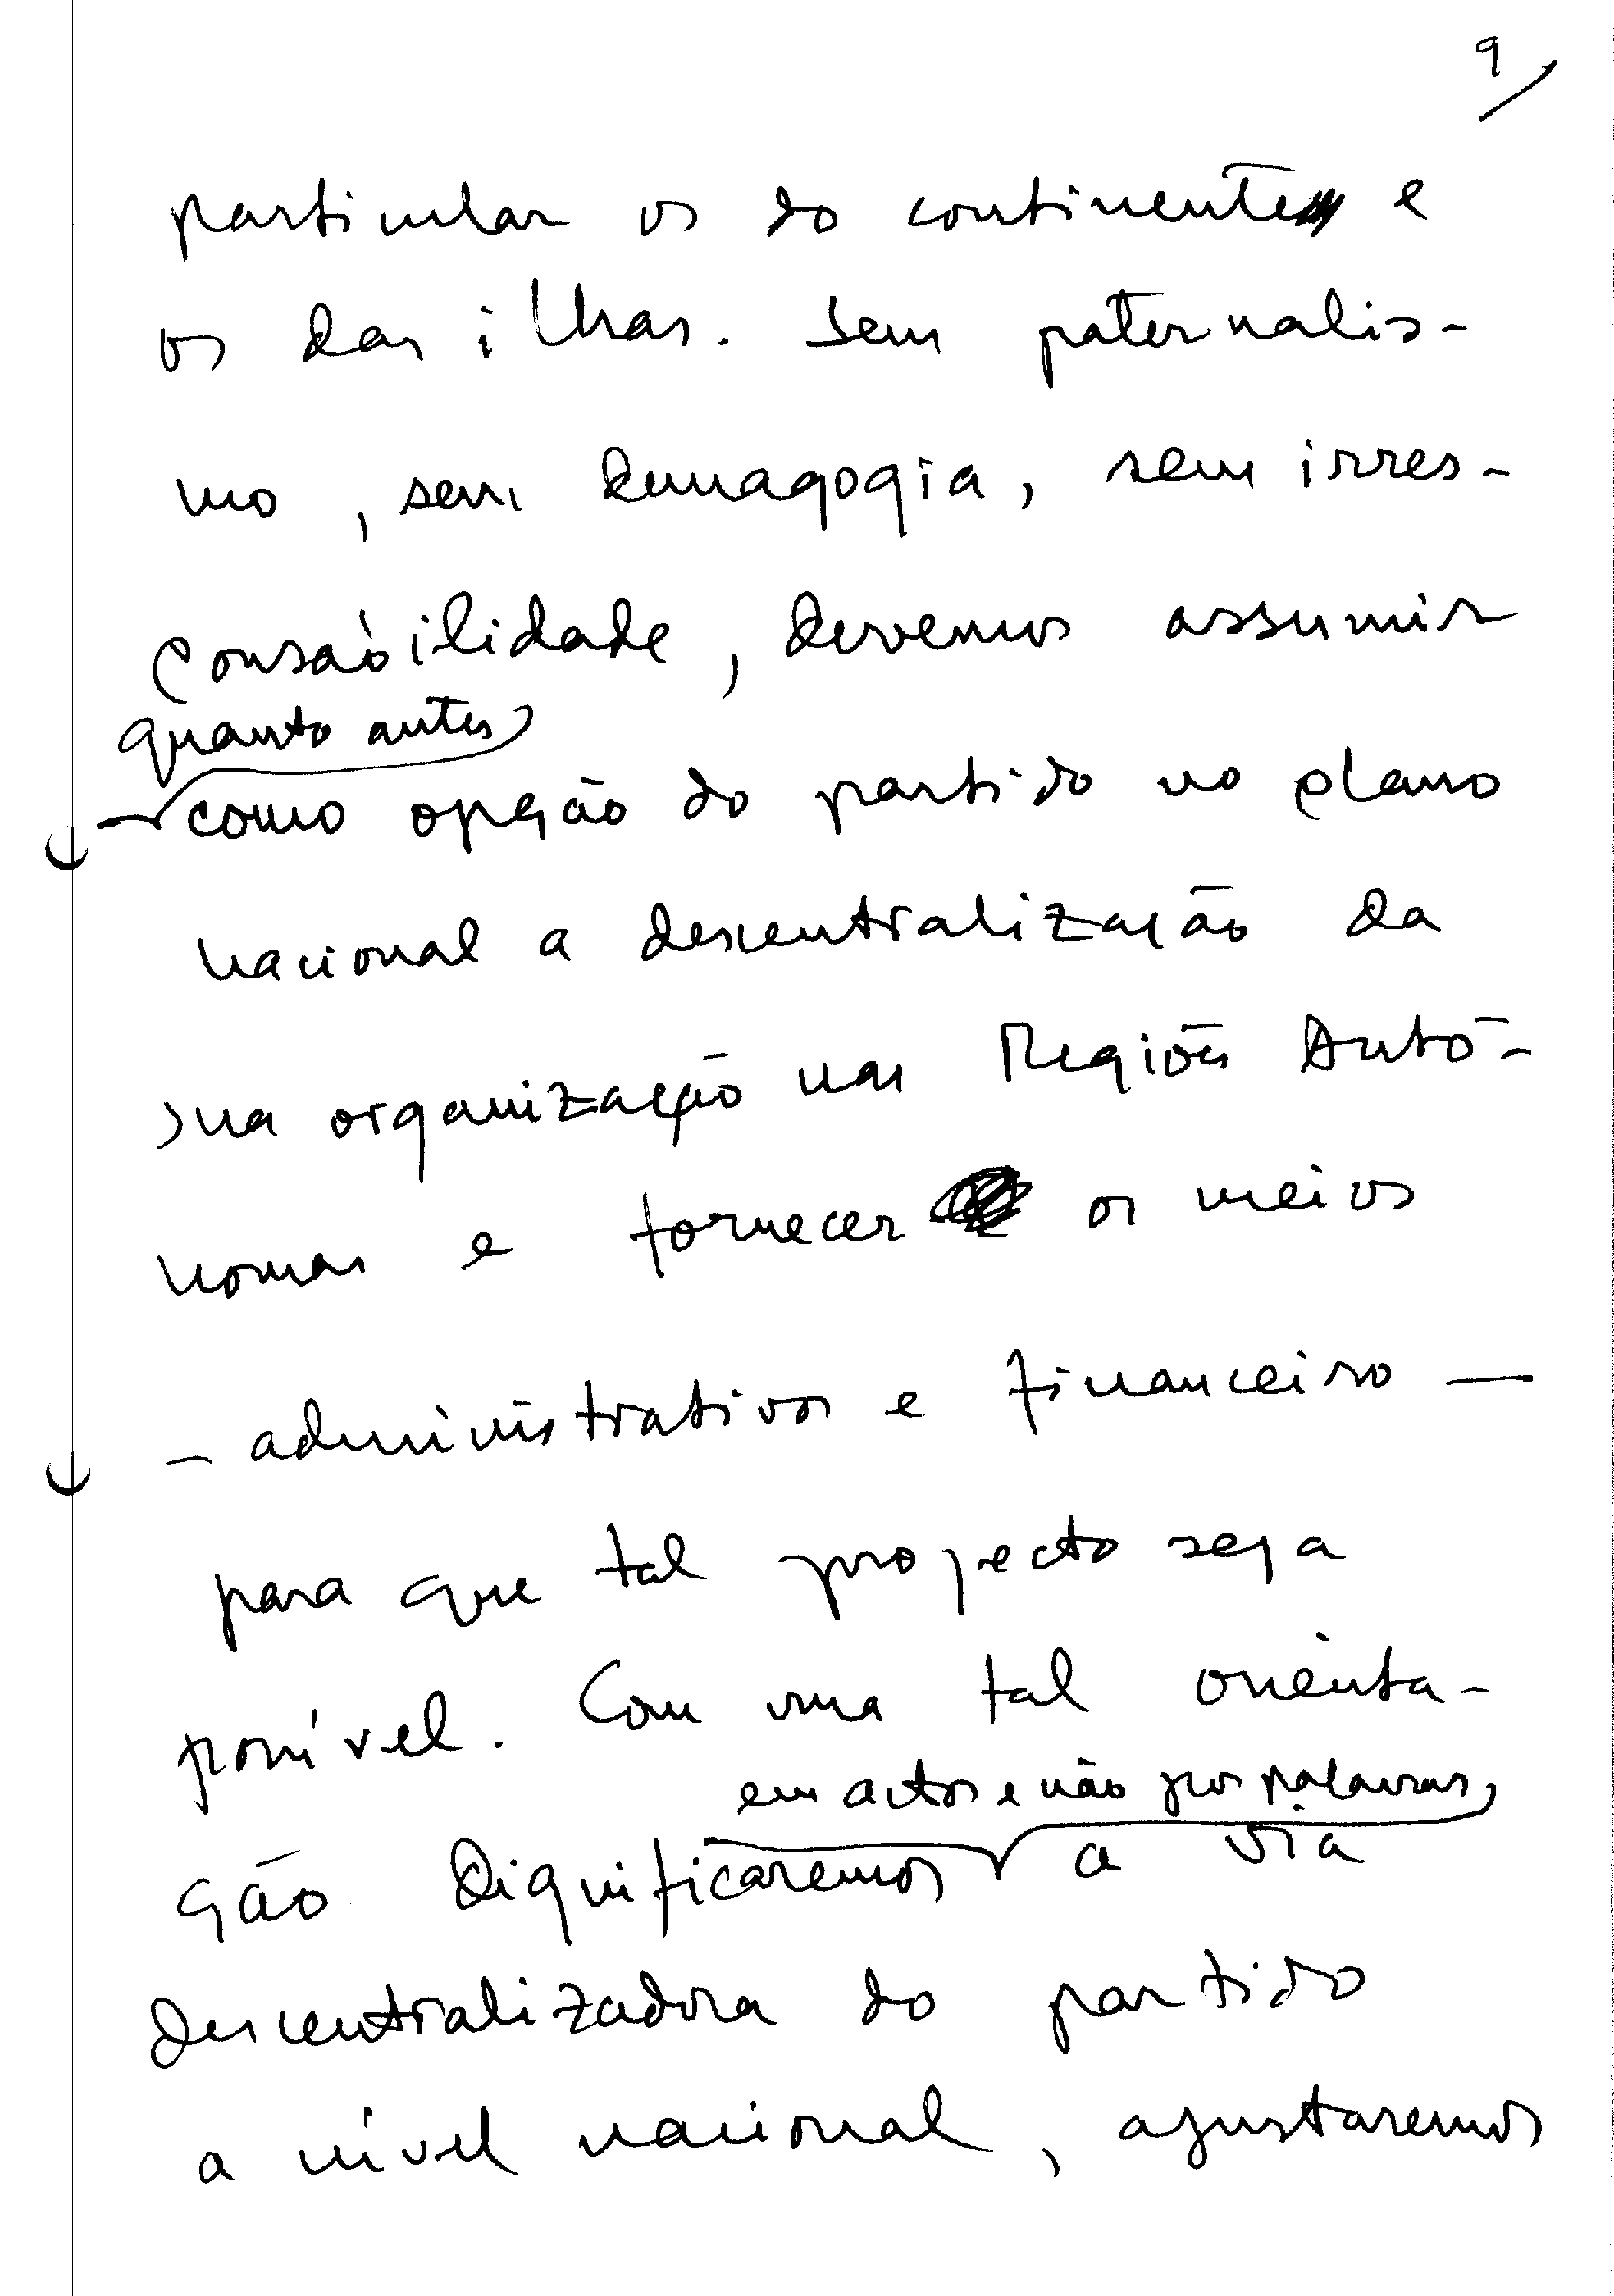 9
particular os do continente e
os das ilhas. Sem paternalis-
mo, sem demagogia, sem irres-
ponsabilidade, devemos assumir
quanto antes
como opção do partido no plano
nacional a descentralização da
sua organização nas Regiões Autó-
nomas e fornecer os meios
- administrativos e financeiro —
para que tal projecto seja
possível. Com uma tal orienta-
ção dignificaremos a via
em actos e não por palavras,
descentralizadora do partido
a nível nacional, ajustaremos